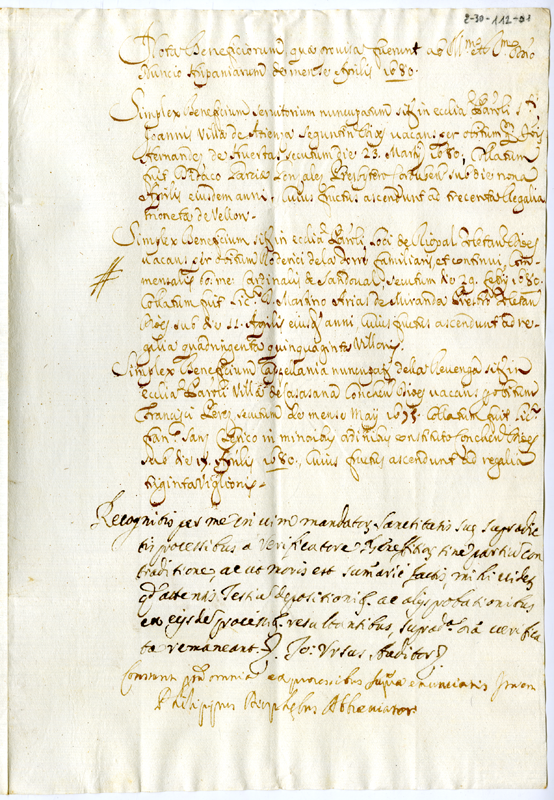 2-30-112-01
Nota Beneficiorum quæ provisa fuerunt ab Ill.mo et R.mo Dno
Nuncio Hispaniarum de mense Aprilis 1680.
Simplex Beneficium servitorium nuncupatum sit. in ecclia Paroli. S.ti
Joannis Villæ de Atienza Seguntin Dioces vacan: per obitum
Hernandez de Huerta, secutum die 23. Martij 1680, Collatum
fuit Didaco Garcia Gonzales Presbytero sub die nona
Aprilis eiusdem anni, Cuius fructus ascendunt ad trecenta Regalia
monetæ de Vellon.
Simplex Beneficium sit. in ecclia Paroli. loci de Toletan Dioces
vacan: per obitum Roderici de la Torre familiaris et continui, Com-
mensalis bo: me: Cardinalis de Sandoval, secutum die 29. Febrij 1680.
Collatum fuit Lic.do D. Marino Arias de Miranda Toletan
Dioces sub die 11. Aprilis eiusd. anni, Cuius fructus ascendunt ad re-
galia quadringenta quinquaginta Villonis.
Simplex Beneficium Capellania nuncupat. della Revenga sit. in
ecclia Paroli. Villæ de Conchen Dioces vacan: p obitum
Francisci Perez secutum de mense Maij 1675. Collatum fuit Lic.do
Fran.co Sanz Clerico in minoribus ordinibus constituto Conchen Dioces
sub die 17. Aprilis 1680, Cuius fructus ascendunt ad regalia
triginta Viglionis.
Recognitis per me in vim mandatorum Sanctitatis suæ supradic-
tis processibus a Verificatore sine partium con
traditione, ac ut moris est summarie factis, mihi videtur
qd attentis Testium depositionib. ac alijs probationibus
ex eijsdem processib. resultantibus, supradicta verifica
ta remaneant. Jo: Ursus Auditor
Constant omnia ex processibus supra enunciatis
Philippus Abbreviator